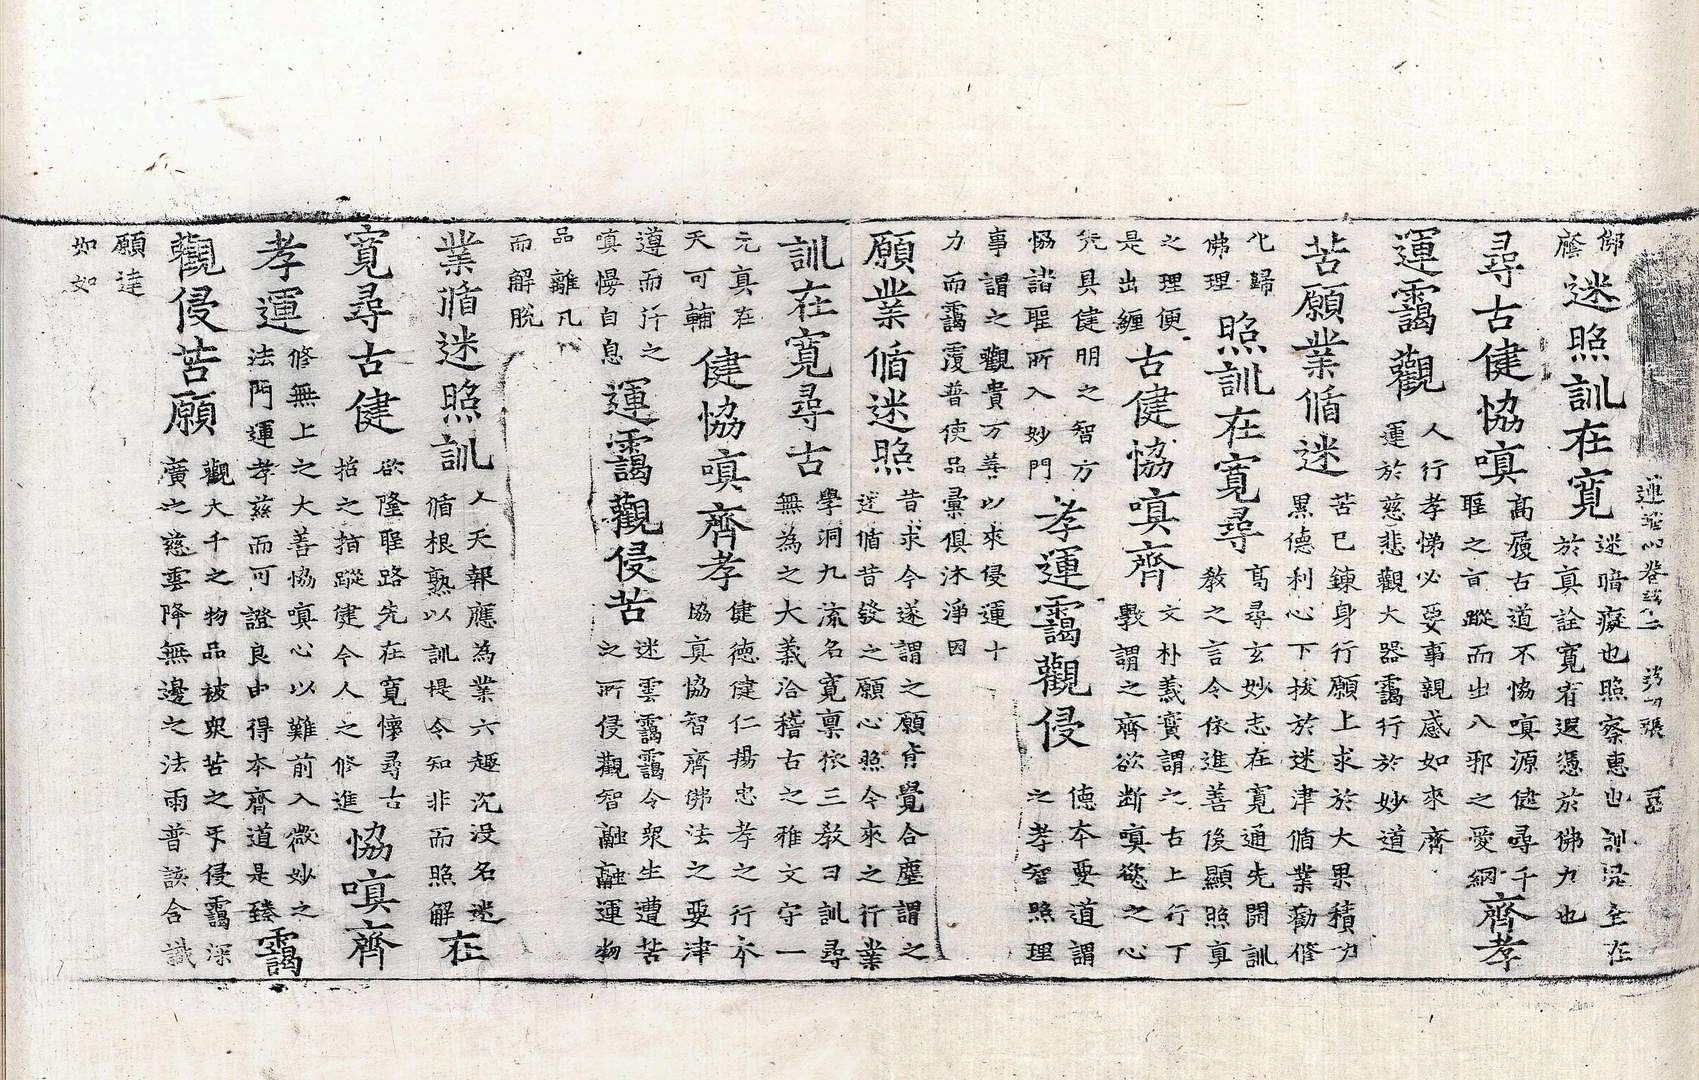 蓮華心卷第十二
迷照訓在寬
迷暗癡也照察惠也訓況全在
於真詮寬宥遐憑於佛力也
尋古健協嗔
高履古道不協嗔源健尋千
聖之言蹤而出入邪之愛網
齊孝
運靄觀
人行孝悌必要事親感如來齊
運於慈悲觀大器靄行於妙道
苦願業循迷
苦已鍊身行願上求於大果積功
累德利心下拔於迷津循業勸修
化歸
佛理
照訓在寬尋
高尋玄妙志在寬通先開訓
教之言令依進善後顯照真
之理便
是出纏
古健協嗔齊
文朴義實謂之古上行下
斆謂之齊欲断嗔慾之心
先具健明之智方
協諧聖所入妙門
孝運靄觀侵
德本要道謂
之孝智照理
事謂之觀貴万善以來侵運十
力而靄覆普使品彙俱沐淨因
願業循迷照
昔求今遂謂之願背覺合塵謂之
迷循昔發之願心照今來之行業
訓在寬尋古
學洞九流名寬稟依三教曰訓尋
無為之大義洽稽古之雅文守一
元真在
天可輔
健協嗔齊孝
健德健仁揚忠孝之行本
協真協智齊佛法之要津
遵而行之
嗔慢自息
運靄觀侵苦
迷雲靄靄令衆生遭苦
之所侵觀智融融運物
品離凡
而解脫
業循迷照訓
人天報應為業六趣沉没名迷
循根熟以訓提令知非而照解
在
寬尋古健
欲隆聖路先在寬懷尋古
哲之指蹤健今人之修進
協嗔齊
孝運
修無上之大善協嗔心以難前入微妙之
法門運孝慈而可證良由得本齊道是臻
靄
觀侵苦願
觀大千之物品被衆苦之所侵靄深
廣之慈雲降無邊之法雨普該含識
願達
如如